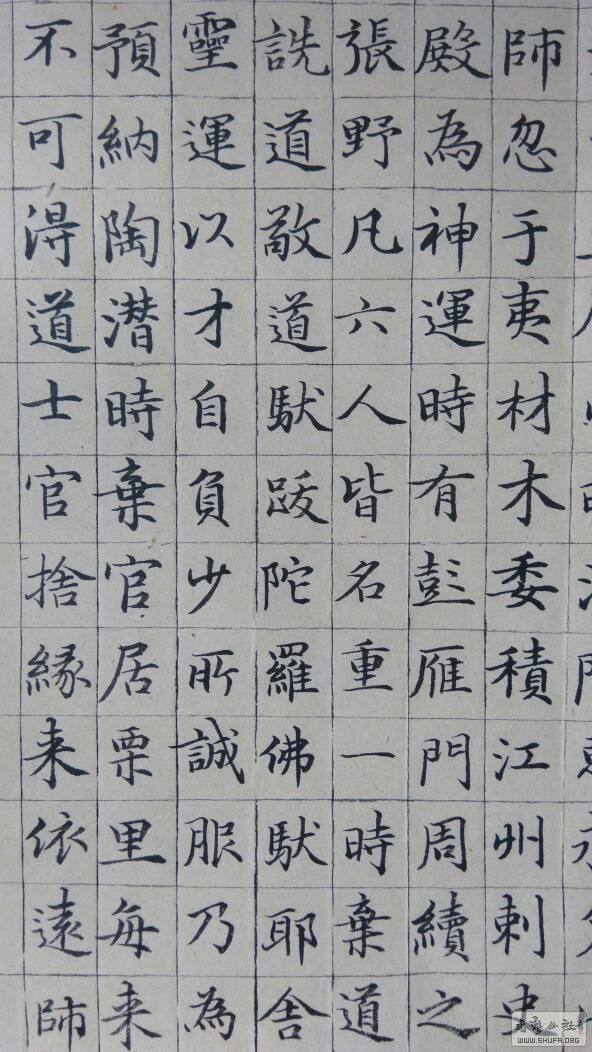 師忽于夷材木委積江州刺史
殿為神運時有彭雁門周續之
張野凡六人皆名重一時棄道
詵道敵道馱跋陀羅佛馱耶舍
靈運以才自負少所誠服乃為
預納陶潜時棄官居栗里每来
不可淂道士官捨緣来依遠師
WWW.SHUFA.ORG